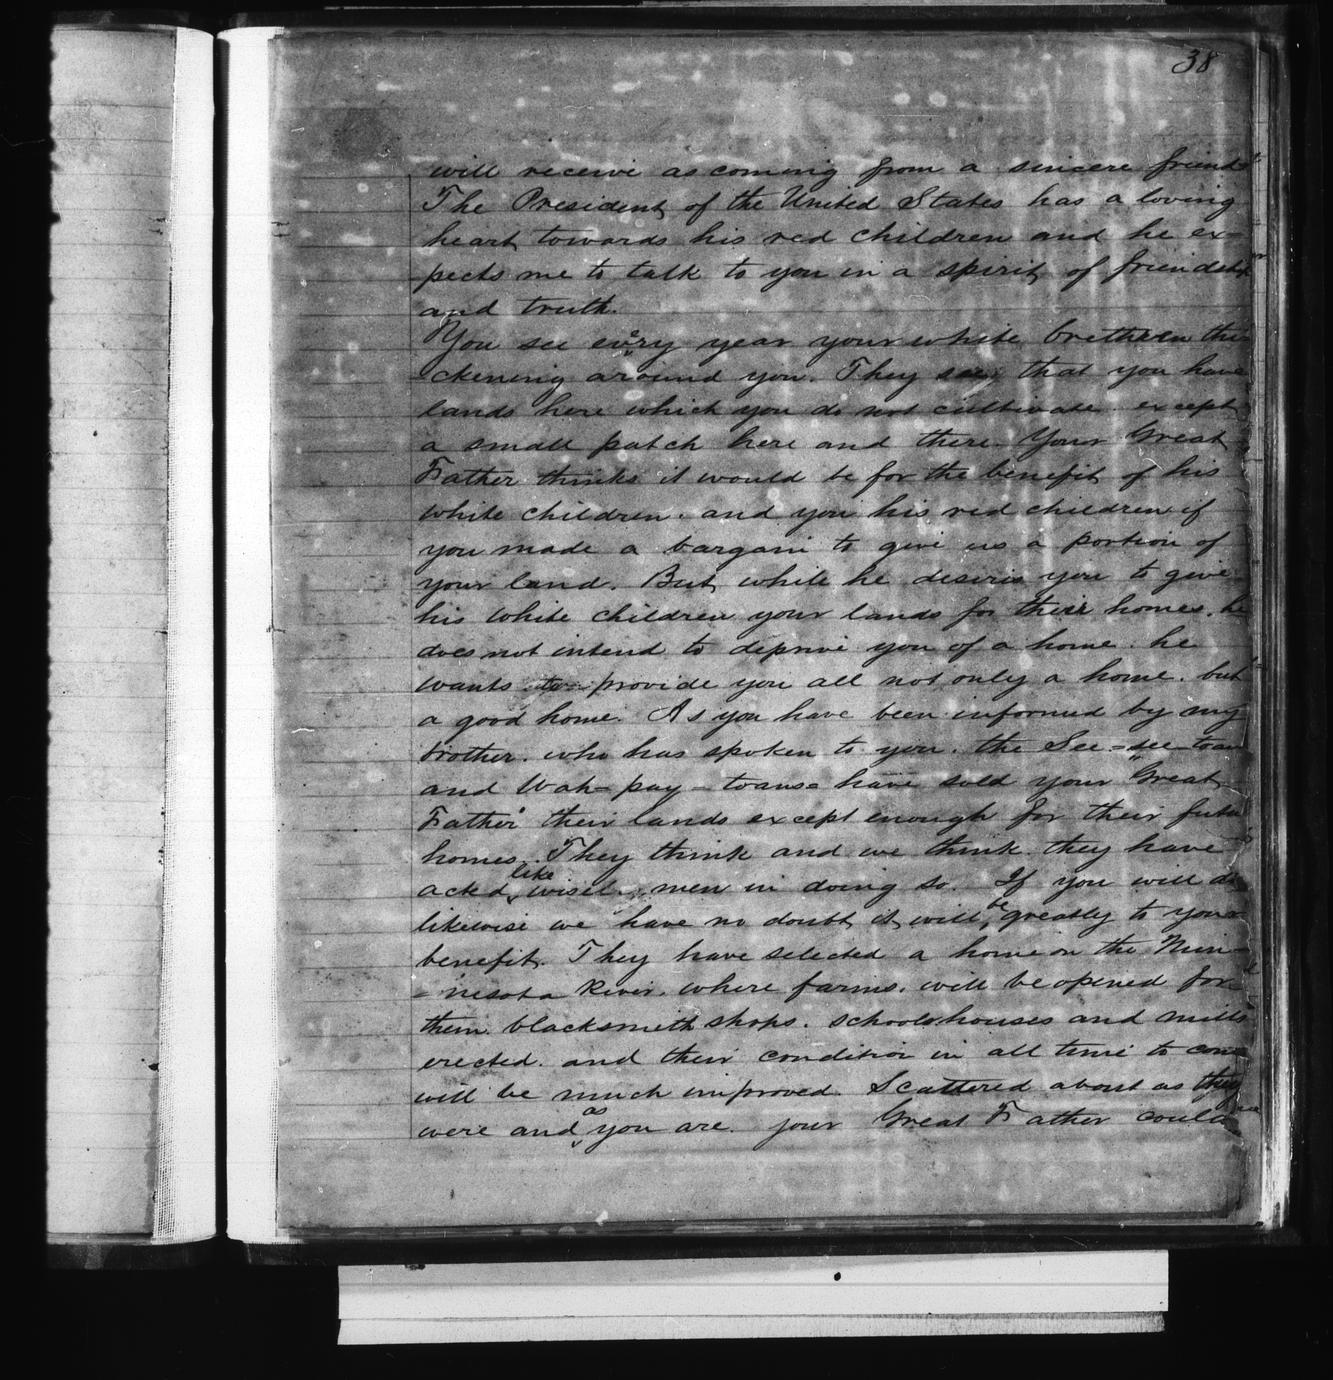 38
will receive as coming from a sincere friend
The President of the United States has a loving
heart towards his red children and he ex-
pects me to talk to you in a spirit of friendship
and truth.
You see every year your white brethren thi-
-ckening around you. They see that you have
lands here which you do not cultivate except
a small patch here and there. Your Great
Father thinks it would be for the benefit of his
white children. and you his red children if
you made a bargain to give us a portion of
your land. But while he desires you to give
his white children your lands for their homes. he
does not intend to deprive you of a home. he
wants to provide you all not only a home. but
a good home. As you have been informed by my
brother. who has spoken to you. the See-see-toan
and Wah-pay-toans= have sold your "Great
Father" their lands except enough for their futu
homes. They think and we think they have
acted like wise men in doing so. If you will do
likewise we have no doubt it will be greatly to your
benefit. They have selected a home on the Min-
-nesota River. where farms. will be opened for
them. blacksmith shops. schoolshouses and mills
erected. and their condition in all time to come
will be much improved. Scattered about as they
were and as you are. your Great Father could